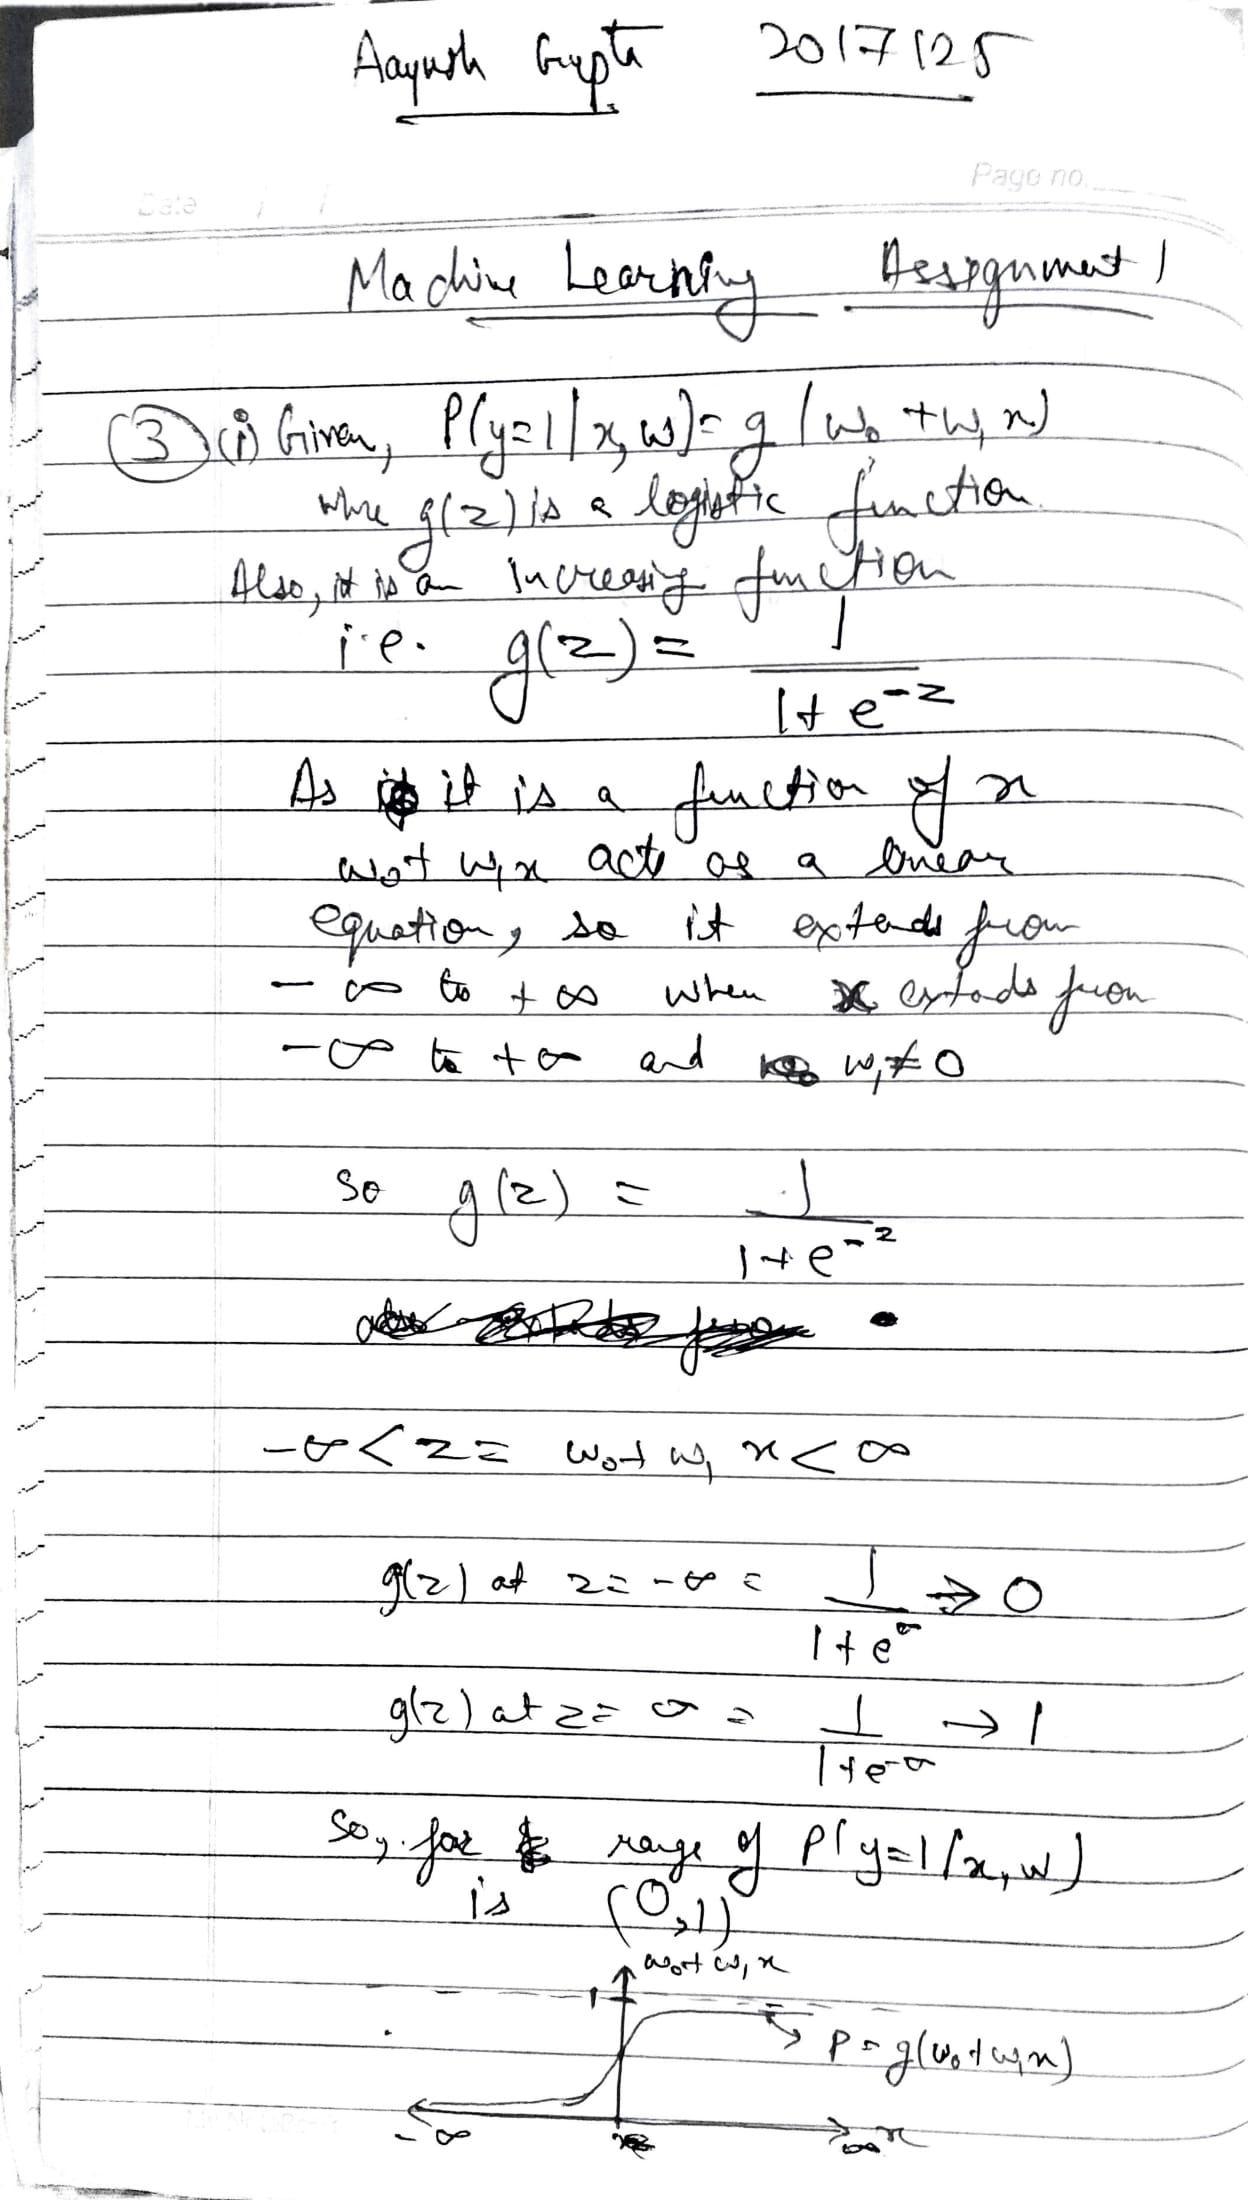 Aayush Gupta 2017125
Page no.
Date / /
Machine Learning Assignment 1
(3) (i) Given, P(y=1|x, w) = g(w₀ + w₁x)
where g(z) is a logistic function.
Also, it is an increasing function
i.e. g(z) = 1/(1+e^-z)
As it is a function of x
w₀+ w₁x acts as a linear
equation, so it extends from
-∞ to +∞ when x extends from
-∞ to +∞ and w₁≠0
so g(z) = 1/(1+e^-z)
-∞ < z = w₀+ w₁ x < ∞
g(z) at z = -∞ = 1/(1+e^∞) → 0
g(z) at z = ∞ = 1/(1+e^-∞) → 1
So, for range of P(y=1/x, w)
is (0,1)
w₀+ w₁x
1
P = g(w₀+w₁x)
-∞ ∞ x